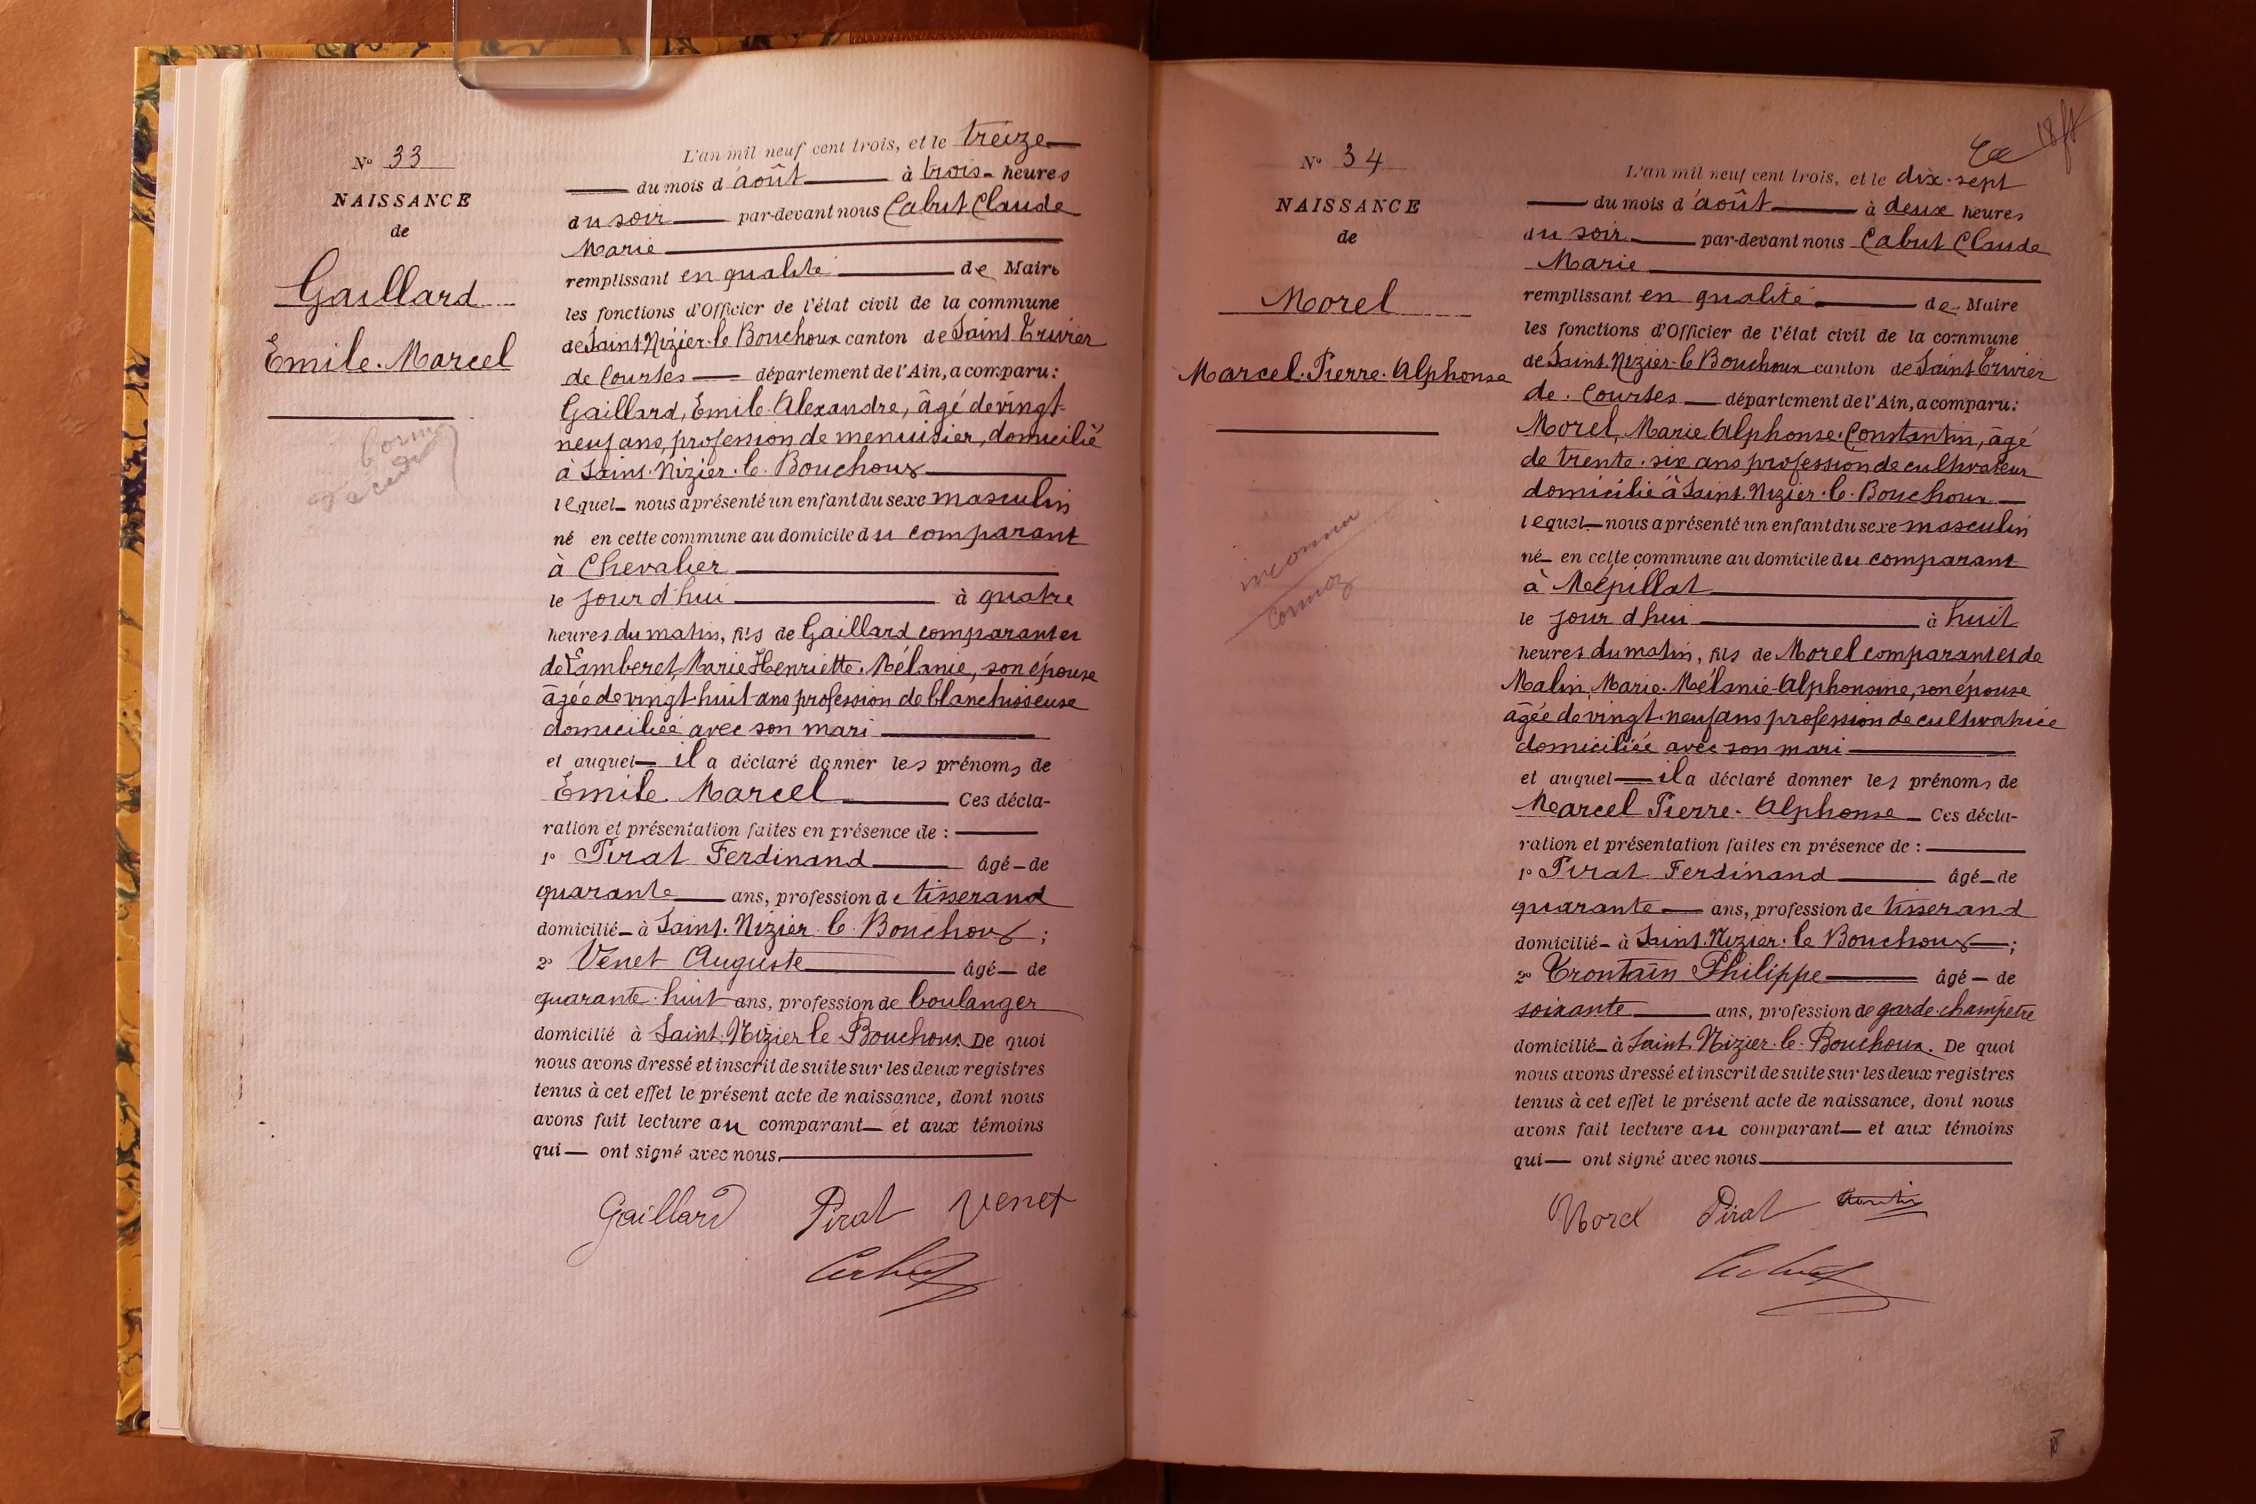 N° 33
NAISSANCE
de
Gaillard
Emile. Marcel
L'an mil neuf cent trois, et le treize
du mois d'août à trois heures
du soir par-devant nous Cabut Claude
Marie
remplissant en qualité de Maire
les fonctions d'Officier de l'état civil de la commune
de Saint. Nizier-le Bouchoux canton de Saint Trivier
de Courtes département de l'Ain, a comparu:
Gaillard, Emile. Alexandre, âgé de vingt-
neuf ans, profession de menuisier, domicilié
à Saint. Nizier. le. Bouchoux
lequel nous a présenté un enfant du sexe masculin
né en cette commune au domicile du comparant
à Chevalier
le jour d'hui à quatre
heures du matin, fils de Gaillard comparant et
de Lamberet, Marie Henriette. Mélanie, son épouse
âgée de vingt-huit ans profession de blanchisseuse
domiciliée avec son mari
et auquel il a déclaré donner les prénoms de
Emile. Marcel Ces décla-
ration et présentation faites en présence de :
1° Pirat Ferdinand âgé de
quarante ans, profession de tisserand
domicilié à Saint. Nizier. le. Bouchoux ;
2° Venet Auguste âgé de
quarante. huit ans, profession de boulanger
domicilié à Saint. Nizier le Bouchoux. De quoi
nous avons dressé et inscrit de suite sur les deux registres
tenus à cet effet le présent acte de naissance, dont nous
avons fait lecture au comparant et aux témoins
qui ont signé avec nous.
Gaillard Pirat Venet
Cabut
N° 34
NAISSANCE
de
Morel
Marcel. Pierre. Alphonse
inconnu
L'an mil neuf cent trois, et le dix-sept
du mois d'août à deux heures
du soir par-devant nous Cabut Claude
Marie
remplissant en qualité de Maire
les fonctions d'Officier de l'état civil de la commune
de Saint. Nizier-le Bouchoux canton de Saint Trivier
de. Courtes département de l'Ain, a comparu:
Morel, Marie Alphonse. Constantin, âgé
de trente. six ans profession de cultivateur
domicilié à Saint. Nizier. le. Bouchoux
lequel nous a présenté un enfant du sexe masculin
né en cette commune au domicile du comparant
à Mépillat
le jour d'hui à huit
heures du matin, fils de Morel comparant et de
Malin, Marie. Mélanie-Alphonsine, son épouse
âgée de vingt. neuf ans profession de cultivatrice
domiciliée avec son mari
et auquel il a déclaré donner les prénoms de
Marcel Pierre. Alphonse Ces décla-
ration et présentation faites en présence de :
1° Pirat Ferdinand âgé de
quarante ans, profession de tisserand
domicilié à Saint. Nizier. le Bouchoux ;
2° Trontain Philippe âgé de
soixante ans, profession de garde-champêtre
domicilié à Saint. Nizier. le. Bouchoux. De quoi
nous avons dressé et inscrit de suite sur les deux registres
tenus à cet effet le présent acte de naissance, dont nous
avons fait lecture au comparant et aux témoins
qui ont signé avec nous
Morel Pirat
Cabut